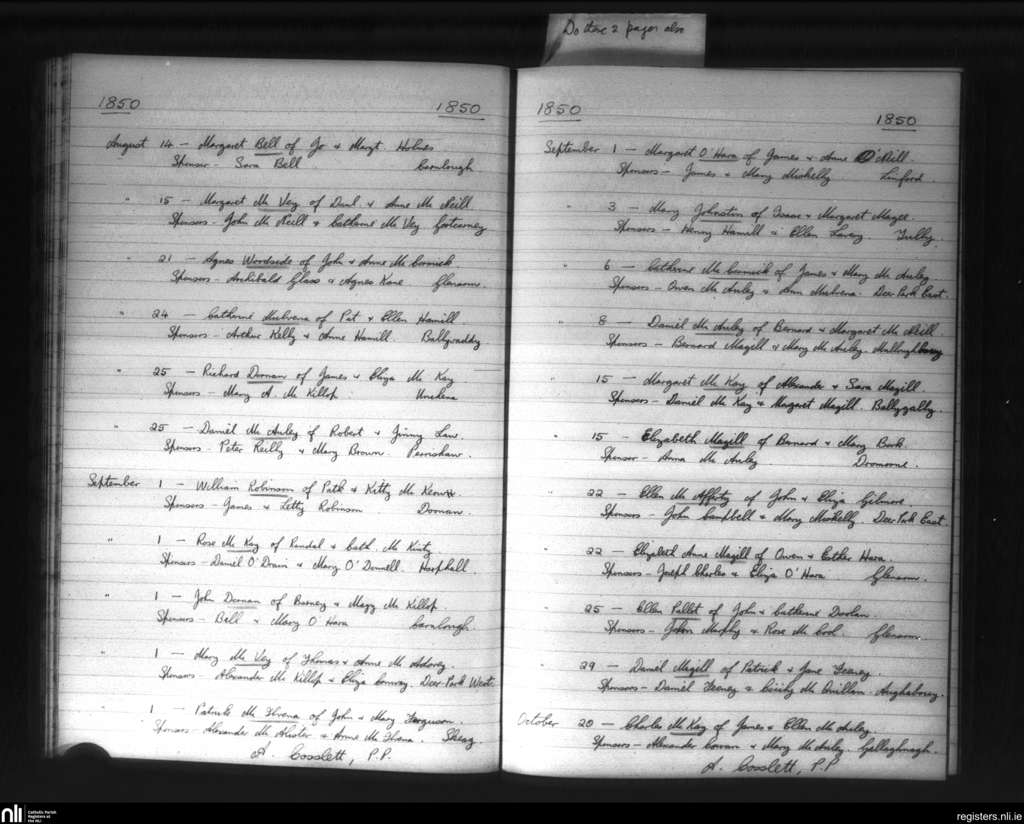 Do these 2 pages also
1850
1850
August 14 — Margaret Bell of Jo & Margt. Holmes
Sponsor - Sara Bell Carnlough.
" 15 — Margaret Mc Vey of Danl & Anne Mc Neill
Sponsors - John Mc Neill & Catherine Mc Vey Gortcarney
" 21 — Agnes Woodside of John & Anne Mc Cormick
Sponsors - Archibald Glass & Agnes Kane Glenarm.
" 24 — Catherine Mulvena of Pat & Ellen Hamill
Sponsors - Arthur Kelly & Anne Hamill. Ballyvaddy
" 25 — Richard Dornan of James & Eliza Mc Kay
Sponsors - Mary A. Mc Killop. Unchena
" 25 — Daniel Mc Auley of Robert & Jinny Law.
Sponsors - Peter Reilly & Mary Brown.
September 1 — William Robinson of Patk & Kitty Mc Keown.
Sponsors - James & Letty Robinson Doonan.
" 1 — Rose Mc Kay of Randal & Cath. Mc Kinty
Sponsors - Daniel O'Drain & Mary O'Donnell
" 1 — John Dornan of Barney & Magy Mc Killop.
Sponsors - Bell & Mary O Hara Carnlough.
" 1 — Mary Mc Vey of Thomas & Anne Mc
Sponsors - Alexander Mc Killop & Eliza Conway. Deer Park West.
1 — Patrick Mc Ilvena of John & Mary Ferguson.
Sponsors - Alexander Mc Alister & Anne Mc Ilvena. Skeag.
A. Cosslett, P.P.
1850
1850
September 1 — Margaret O'Hara of James & Anne O'Neill.
Sponsors - James & Mary Miskelly Linford.
" 3 — Mary Johnston of Isaac & Margaret Magee.
Sponsors - Henry Hamill & Ellen Lavery. Tully.
" 6 — Catherine Mc Cormick of James & Mary Mc Auley
Sponsors - Owen Mc Auley & Ann Mulvena. Deer Park East.
" 8 — Daniel Mc Auley of Bernard & Margaret Mc Neill.
Sponsors - Bernard Magill & Mary Mc Auley.
" 15 — Margaret Mc Kay of Alexander & Sara Magill.
Sponsors - Daniel Mc Kay & Margaret Magill. Ballygally.
" 15 — Elizabeth Magill of Bernard & Mary
Sponsor - Anna Mc Auley.
" 22 — Ellen Mc Afferty of John & Eliza Gilmore.
Sponsors - John Campbell & Mary Miskelly. Deer Park East.
" 22 — Elizabeth Anne Magill of Owen & Esther Hara.
Sponsors - Joseph Charles & Eliza O'Hara Glenarm.
" 25 — Ellen Pullet of John & Catherine
Sponsors - John Murphy & Rose Mc Cool. Glenarm.
" 29 — Daniel Magill of Patrick & Jane Feeney.
Sponsors - Daniel Feeney & Mc Quillan.
October 20 — Charles Mc Kay of James & Ellen Mc Auley.
Sponsors - Alexander Cowan & Mary Mc Auley.
A. Cosslett, P.P.
nli
Catholic Parish
Registers at
the NLI
registers.nli.ie